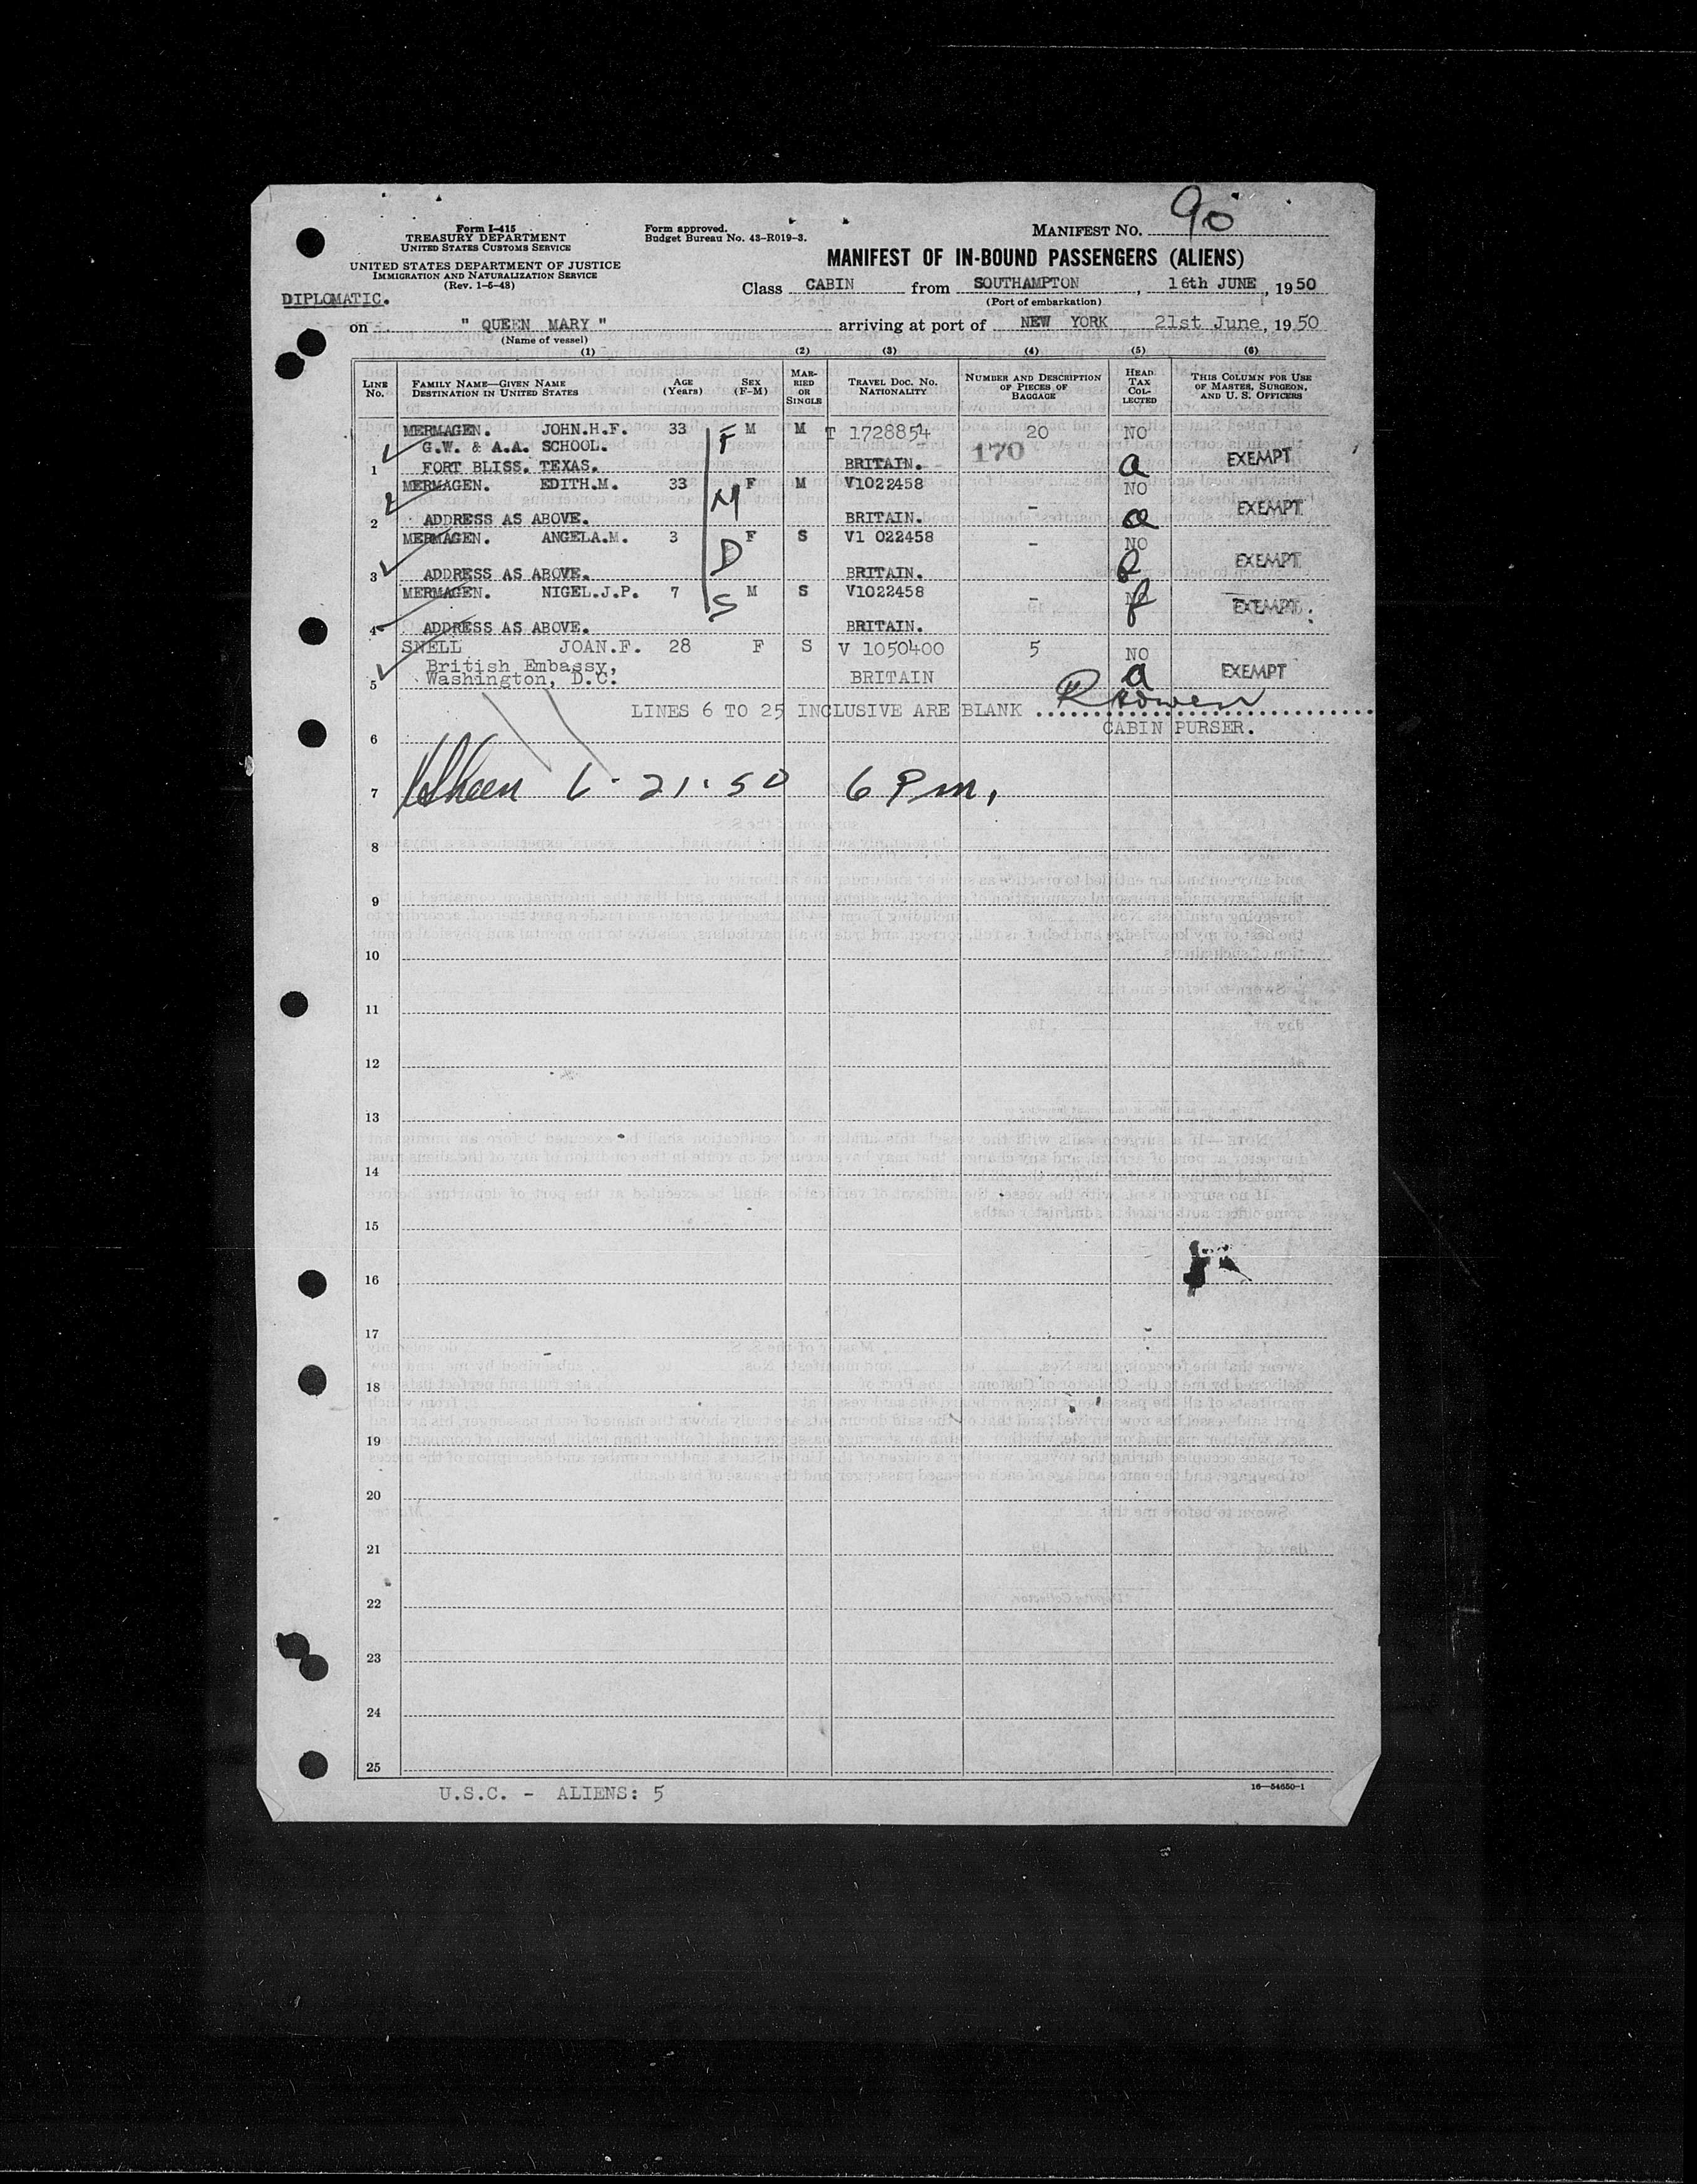 90
Form I-415
TREASURY DEPARTMENT
UNITED STATES CUSTOMS SERVICE
UNITED STATES DEPARTMENT OF JUSTICE
IMMIGRATION AND NATURALIZATION SERVICE
(Rev. 1-6-48)
Form approved.
Budget Bureau No. 43-R019-3.
MANIFEST NO.
MANIFEST OF IN-BOUND PASSENGERS (ALIENS)
DIPLOMATIC.
Class CABIN from SOUTHAMPTON, 16th JUNE, 1950
(Port of embarkation)
on " QUEEN MARY " arriving at port of NEW YORK 21st June, 1950
(Name of vessel)
(1) (2) (3) (4) (5) (6)
LINE No. FAMILY NAME—GIVEN NAME DESTINATION IN UNITED STATES AGE (Years) SEX (F-M) MARRIED OR SINGLE TRAVEL DOC. NO. NATIONALITY NUMBER AND DESCRIPTION OF PIECES OF BAGGAGE HEAD TAX COLLECTED THIS COLUMN FOR USE OF MASTER, SURGEON, AND U. S. OFFICERS
MERMAGEN. JOHN.H.F. 33 F M M T 1728854 20 NO
G.W. & A.A. SCHOOL. 170
1 FORT BLISS. TEXAS. BRITAIN. a EXEMPT
MERMAGEN. EDITH.M. 33 M F M V1022458 NO
2 ADDRESS AS ABOVE. BRITAIN. - a EXEMPT
MERMAGEN. ANGELA.M. 3 D F S V1 022458 - NO
3 ADDRESS AS ABOVE. BRITAIN. EXEMPT
MERMAGEN. NIGEL.J.P. 7 S M S V1022458 - NO
4 ADDRESS AS ABOVE. BRITAIN. EXEMPT.
SNELL JOAN.F. 28 F S V 1050400 5 NO
British Embassy,
5 Washington, D.C. BRITAIN a EXEMPT
LINES 6 TO 25 INCLUSIVE ARE BLANK
CABIN PURSER.
6
7 6-21-50 6 Pm.
8
9
10
11
12
13
14
15
16
17
18
19
20
21
22
23
24
25
U.S.C. - ALIENS: 5
16—54650-1